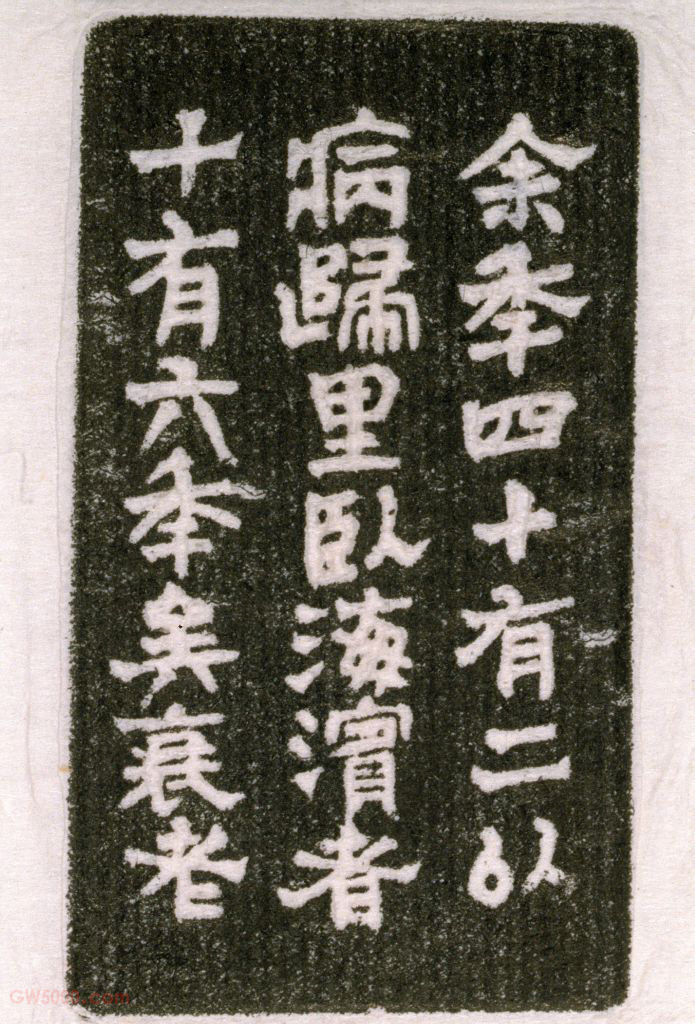 余季四十有二以
病歸里臥海濱者
十有六季矣衰老